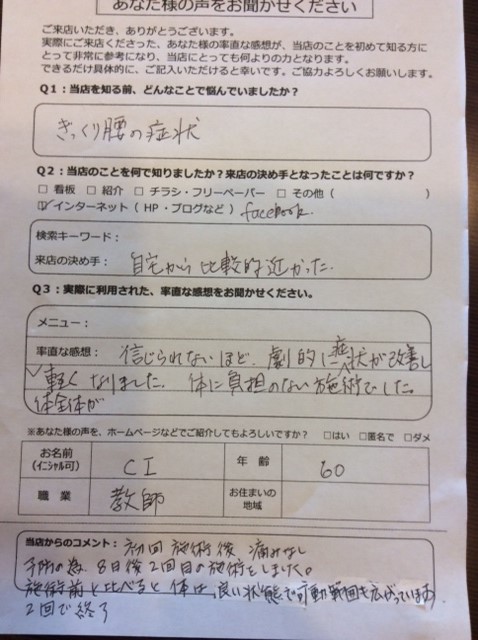 あなた様の声をお聞かせください
ご来店いただき、ありがとうございます。
実際にご来店くださった、あなた様の率直な感想が、当店のことを初めて知る方に
とって非常に参考になり、当店にとっても何よりの力となります。
できるだけ具体的に、ご記入いただけると幸いです。ご協力よろしくお願いします。
Q1：当店を知る前、どんなことで悩んでいましたか？
ぎっくり腰の症状
Q2：当店のことを何で知りましたか？来店の決め手となったことは何ですか？
□ 看板 □ 紹介 □ チラシ・フリーペーパー □ その他（ ）
☑ インターネット（ HP・ブログなど ） facebook.
検索キーワード：
来店の決め手： 自宅から比較的近かった.
Q3：実際に利用された、率直な感想をお聞かせください。
メニュー：
率直な感想： 信じられないほど、劇的に症状が改善し
軽くなりました。体に負担のない施術でした。
体全体が
※あなた様の声を、ホームページなどでご紹介してもよろしいですか？ □はい □匿名で □ダメ
お名前 CI 年 齢 60
（イニシャル可）
職 業 教師 お住まいの
地域
当店からのコメント： 初回 施術後 痛みなし
予防の為、8日後2回目の施術をしました。
施術前と比べると体は、良い状態で可動範囲も広がっています。
2回で終了